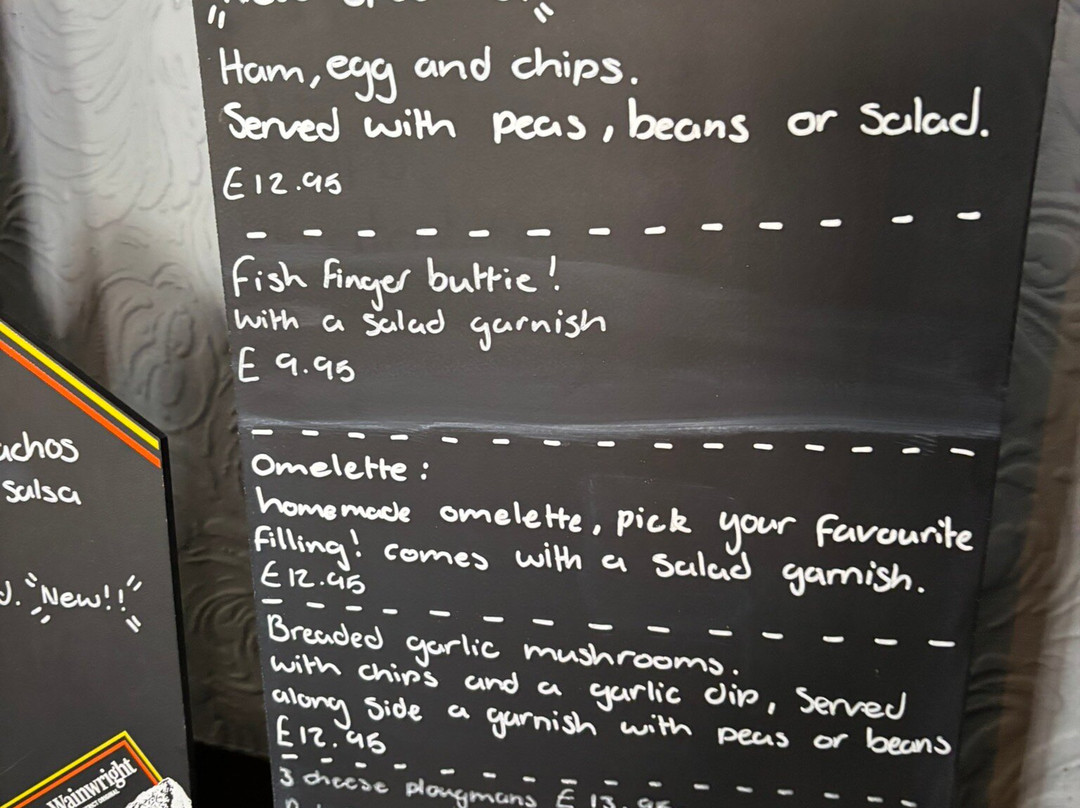 Ham, egg and chips.
Served with peas, beans or salad.
£12.95
Fish finger buttie!
with a salad garnish
£ 9.95
Omelette:
homemade omelette, pick your favourite
filling! comes with a salad garnish.
£12.95
Breaded garlic mushrooms.
with chips and a garlic dip, Served
along side a garnish with peas or beans
£12.95
3 cheese plougmans £ 13.95
achos
salsa
d. "New!!"
Wainwright